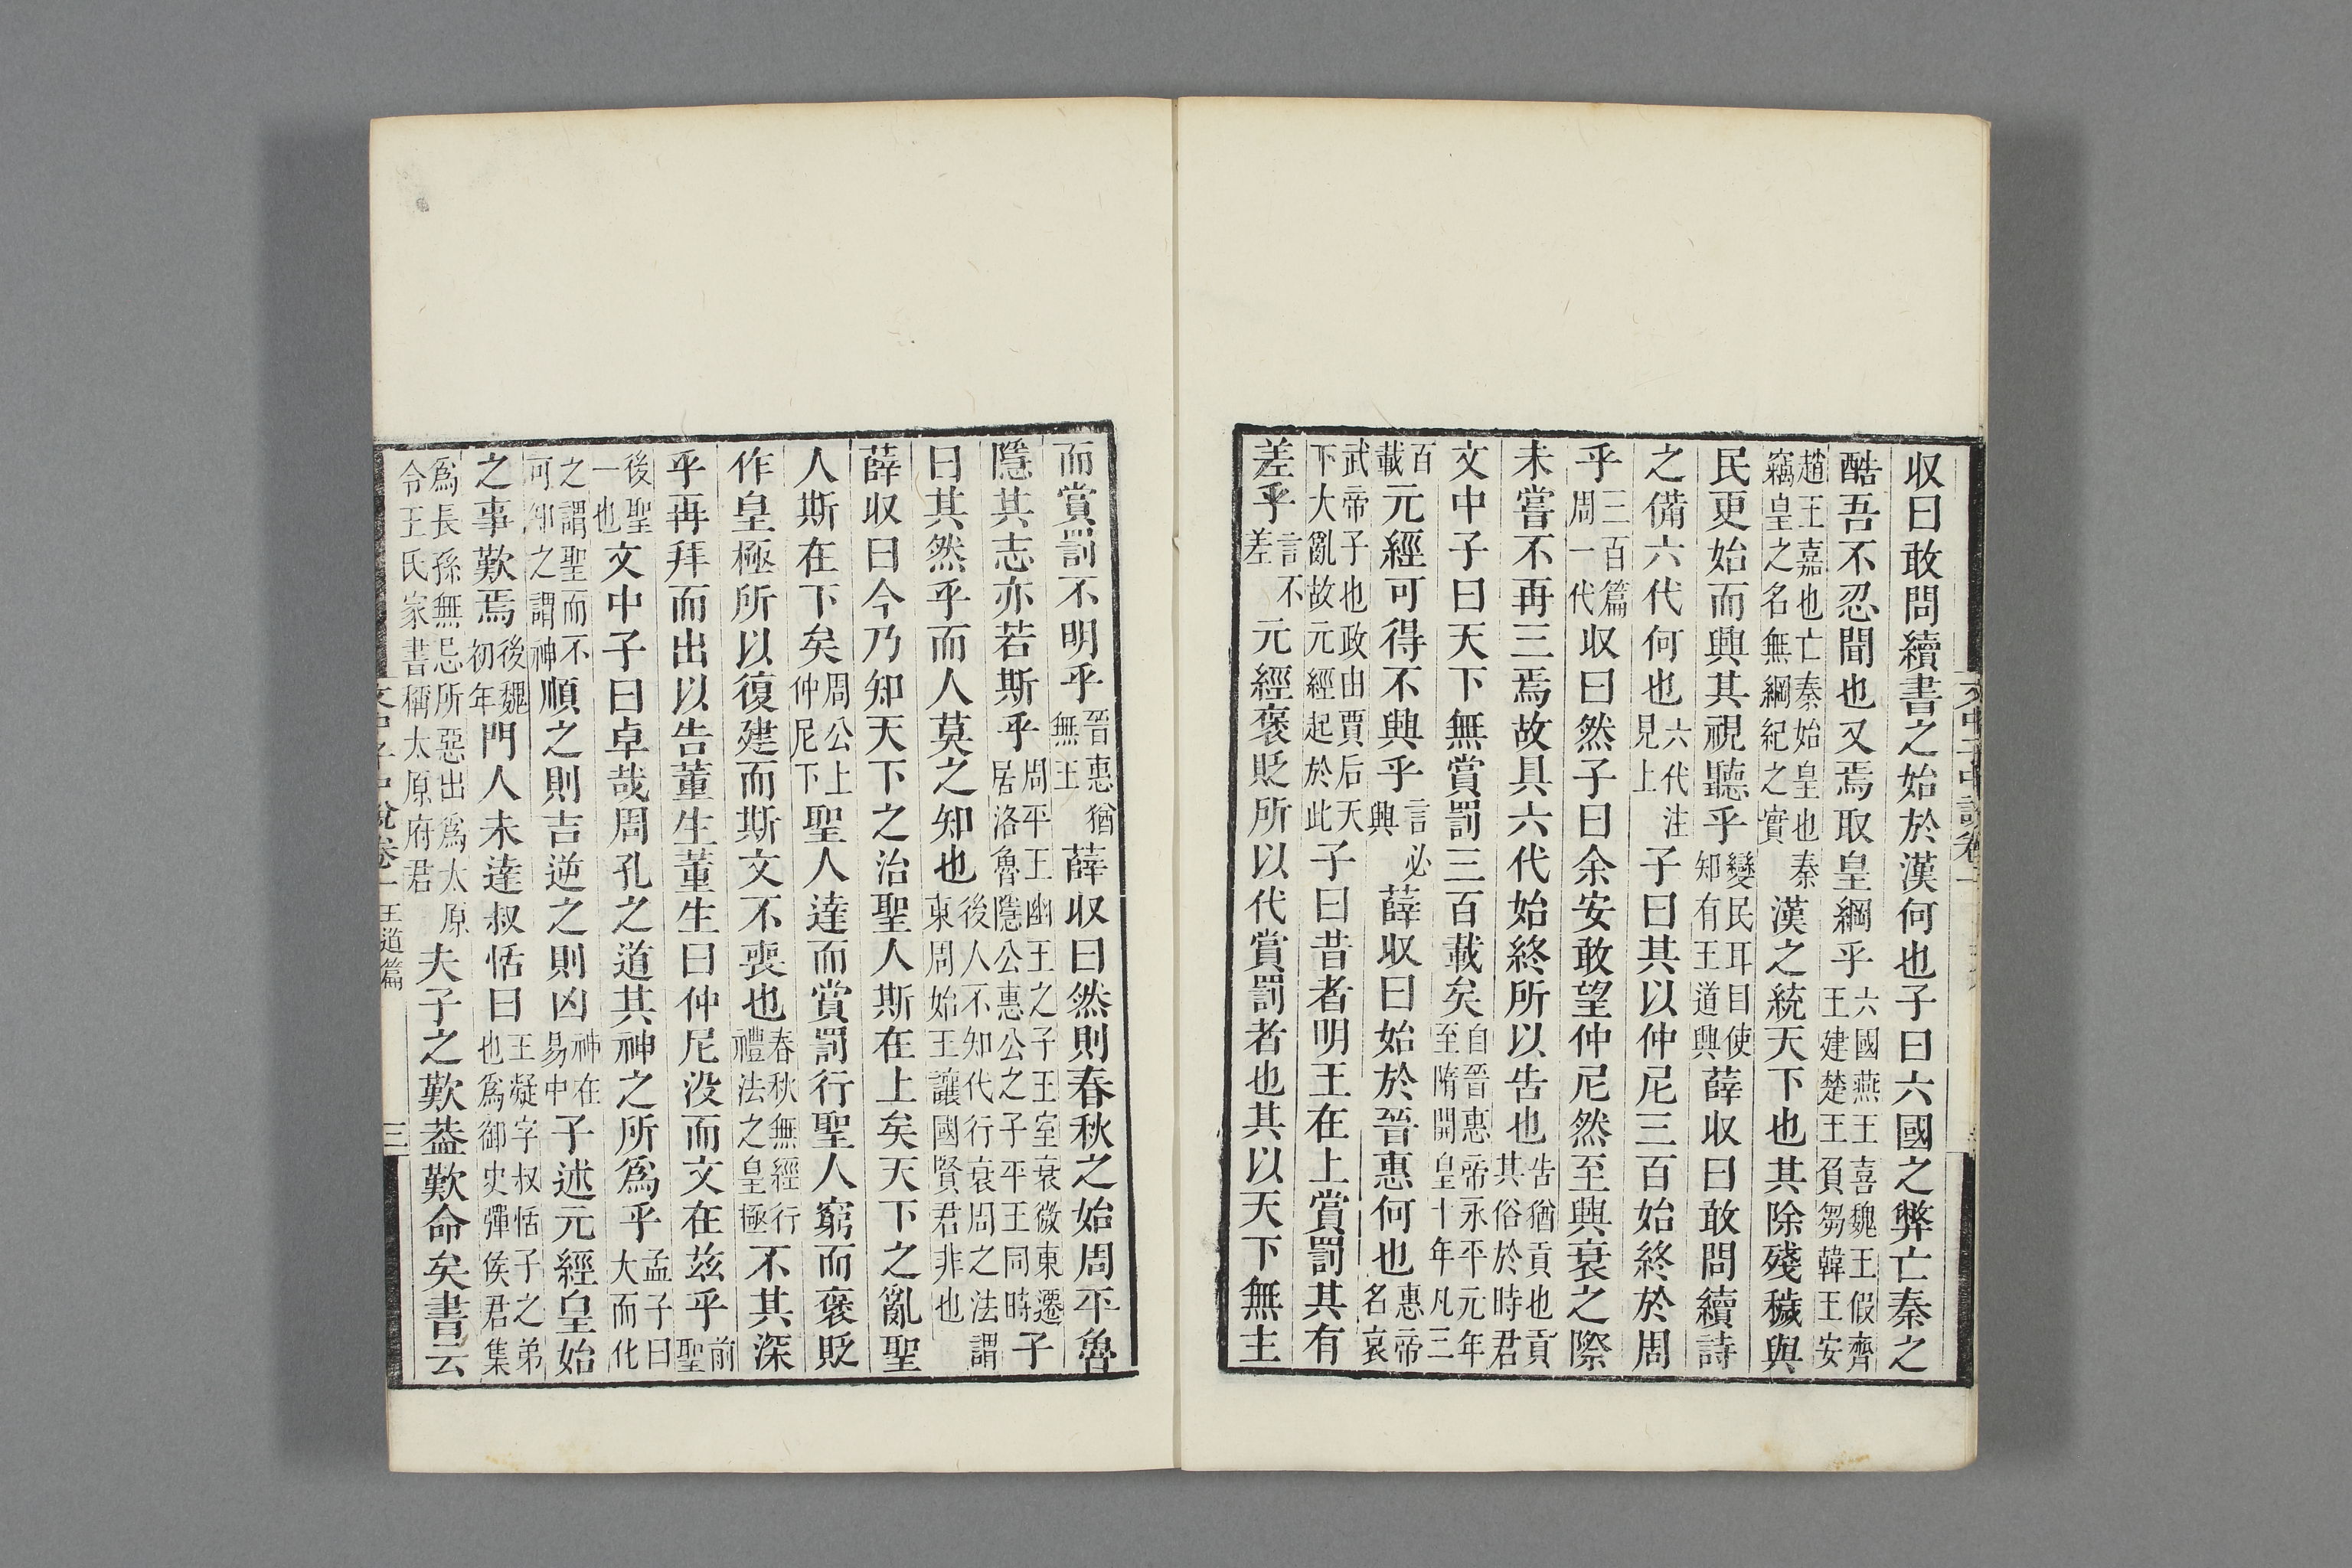 文中子中說卷一
収曰敢問續書之始於漢何也子曰六國之弊亡秦之
酷吾不忍聞也又焉取皇綱乎六國燕王喜魏王假齊王建楚王負芻韓王安
趙王嘉也亡秦始皇也秦竊皇之名無綱紀之實漢之統天下也其除殘穢與
民更始而興其視聽乎變民耳目使知有王道興薛収曰敢問續詩
之備六代何也六代注見上子曰其以仲尼三百始終於周
乎三百篇周一代収曰然子曰余安敢望仲尼然至興衰之際
未嘗不再三焉故具六代始終所以告也告猶貢也貢其俗於時君
文中子曰天下無賞罰三百載矣自晉惠帝永平元年至隋開皇十年凡三
百載元經可得不興乎言必興薛収曰始於晉惠何也惠帝名衷
武帝子也政由賈后天下大亂故元經起於此子曰昔者明王在上賞罰其有
差乎言不差元經褒貶所以代賞罰者也其以天下無主
而賞罰不明乎晉惠猶無王薛収曰然則春秋之始周平魯
隱其志亦若斯乎周平王幽王之子王室衰微東遷居洛魯隱公惠公之子平王同時子
曰其然乎而人莫之知也後人不知代行衰周之法謂東周始王讓國賢君非也
薛収曰今乃知天下之治聖人斯在上矣天下之亂聖
人斯在下矣周公上仲尼下聖人達而賞罰行聖人窮而褒貶
作皇極所以復建而斯文不喪也春秋無經行禮法之皇極不其深
乎再拜而出以告董生董生曰仲尼没而文在茲乎前聖
後聖一也文中子曰卓哉周孔之道其神之所爲乎孟子曰大而化
之謂聖而不可知之謂神順之則吉逆之則凶神在易中子述元經皇始
之事歎焉後魏初年門人未達叔恬曰王凝字叔恬子之弟也爲御史彈侯君集
爲長孫無忌所惡出爲太原令王氏家書稱太原府君夫子之歎葢歎命矣書云
文中子中說卷一 王道篇 三